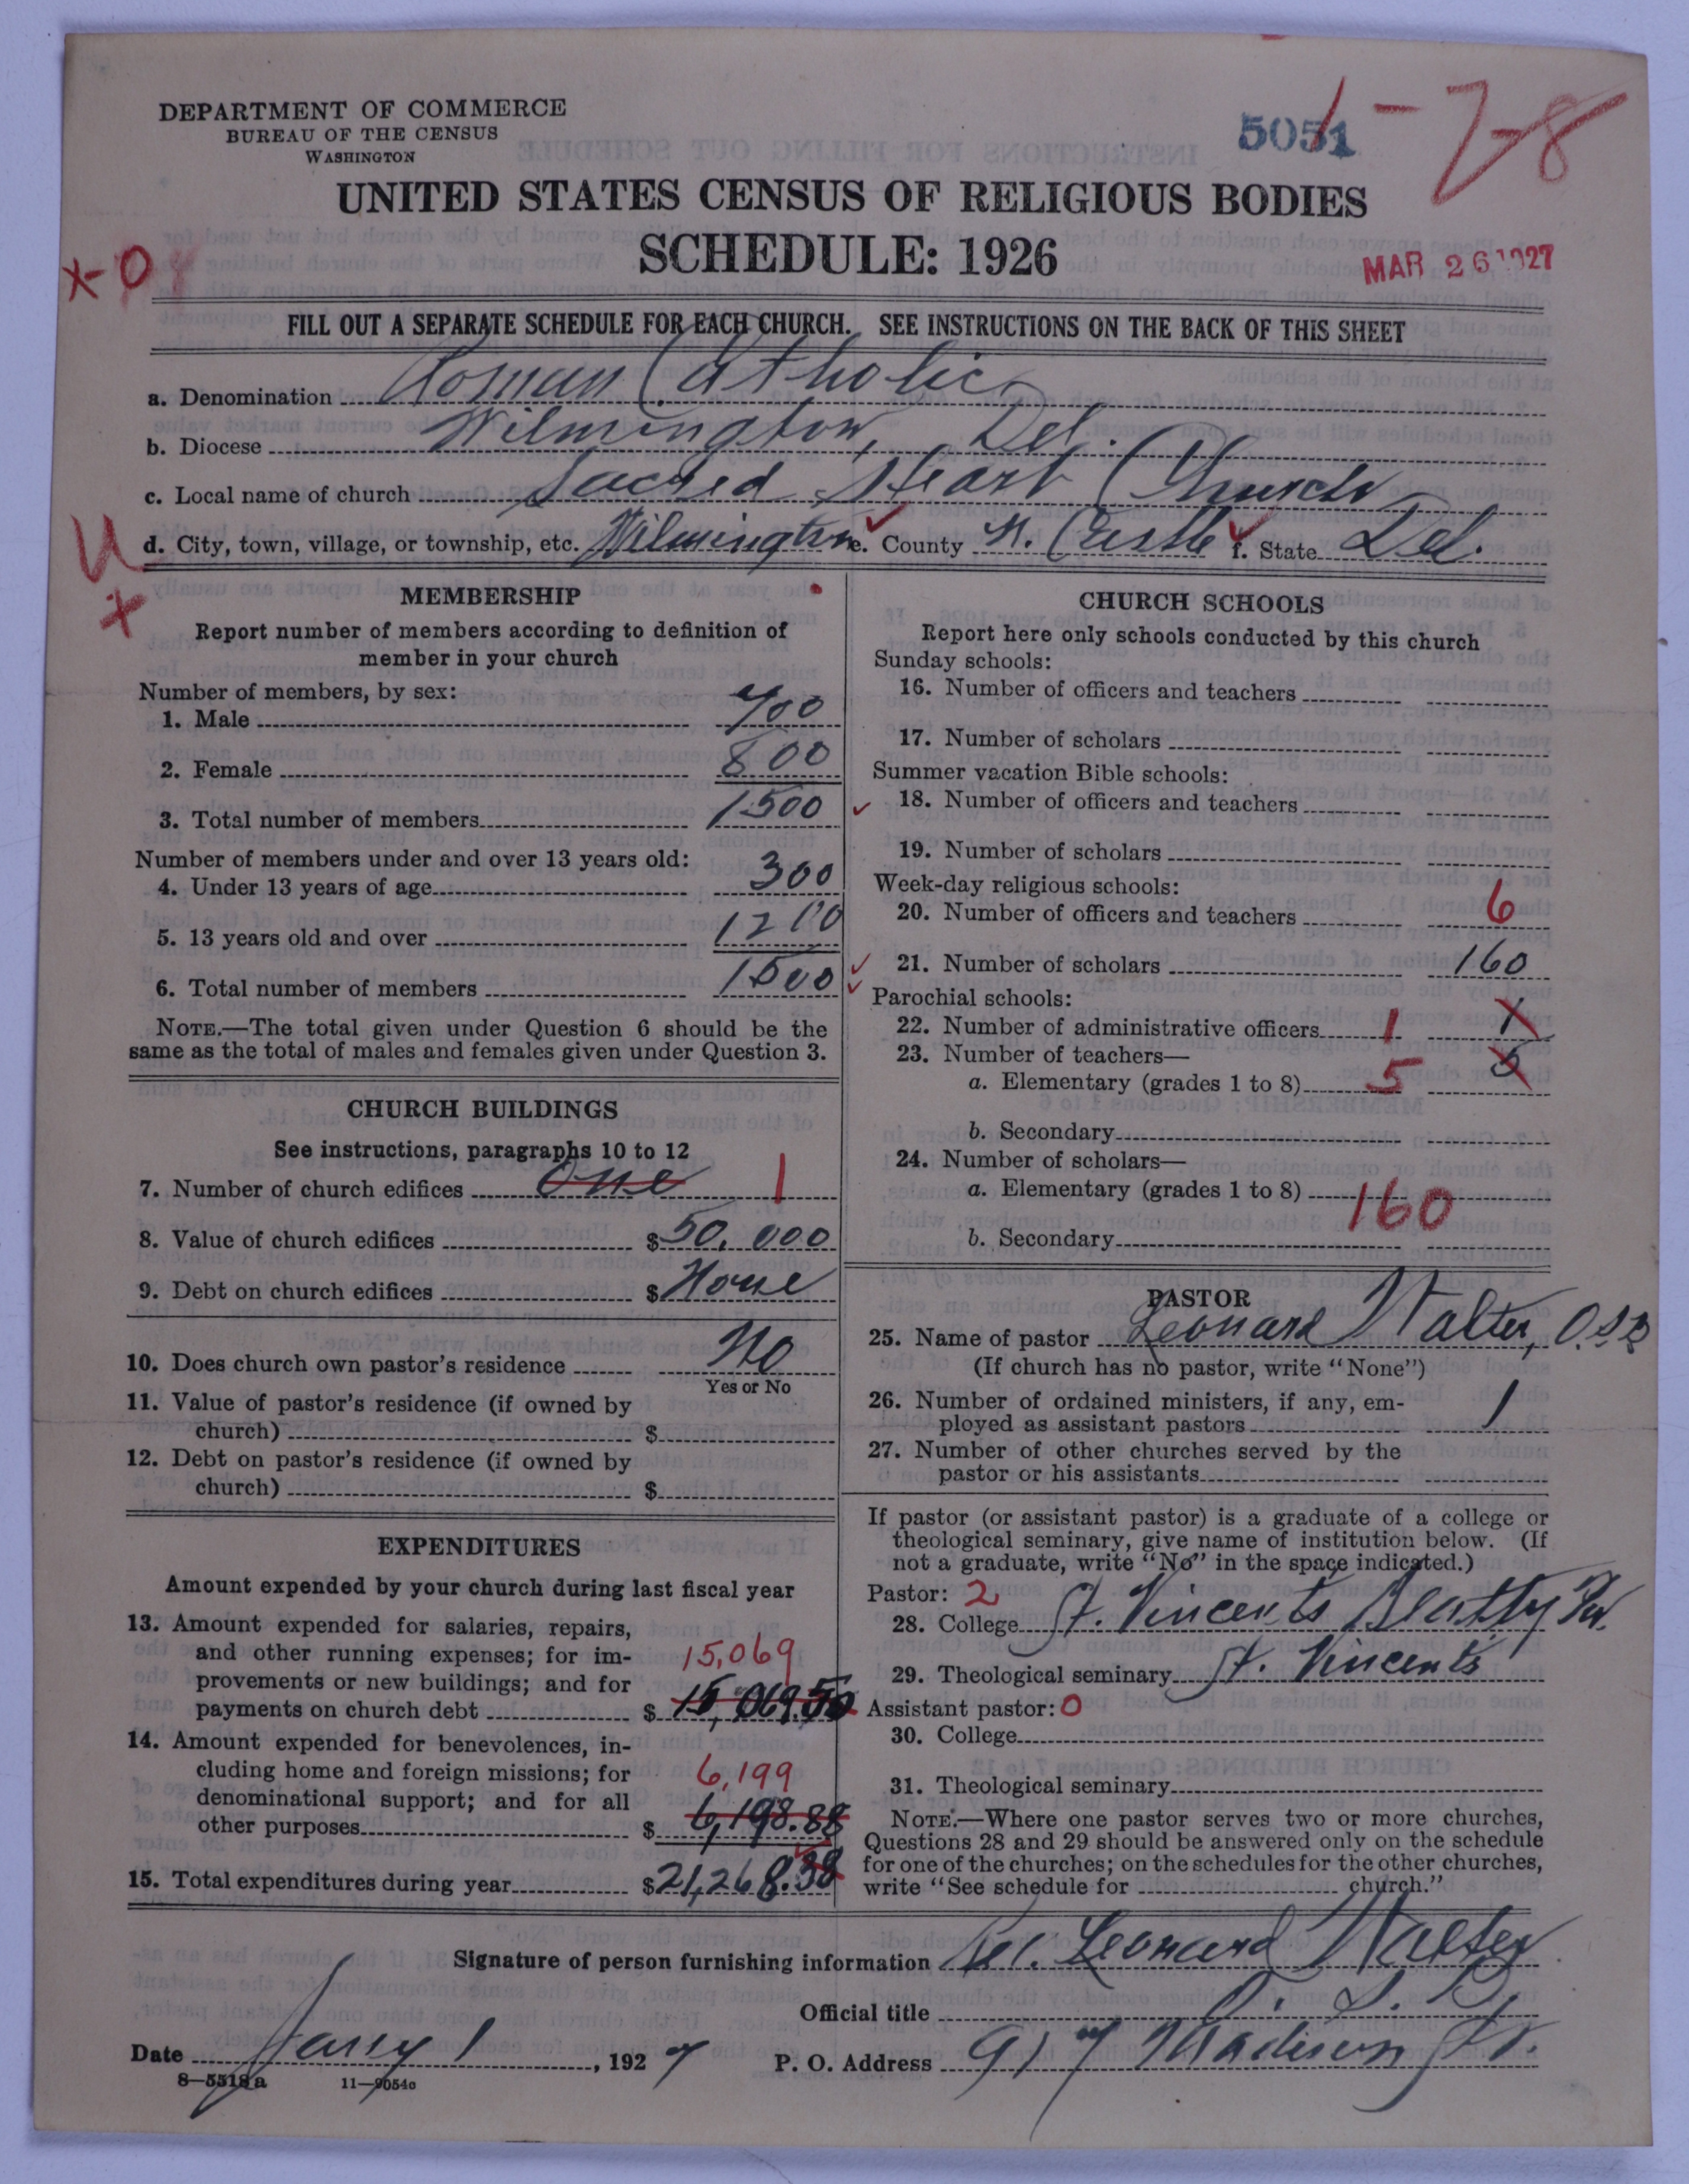 DEPARTMENT OF COMMERCE
BUREAU OF THE CENSUS
WASHINGTON
5051
1-7-8
UNITED STATES CENSUS OF RELIGIOUS BODIES
SCHEDULE: 1926
MAR 26 1927
X-0
FILL OUT A SEPARATE SCHEDULE FOR EACH CHURCH. SEE INSTRUCTIONS ON THE BACK OF THIS SHEET
a. Denomination Roman Catholic
b. Diocese Wilmington, Del.
c. Local name of church Sacred Heart Church
U d. City, town, village, or township, etc. Wilmington e. County N. Castle f. State Del.
X
MEMBERSHIP
Report number of members according to definition of
member in your church
Number of members, by sex:
1. Male 700
2. Female 800
3. Total number of members 1500
Number of members under and over 13 years old:
4. Under 13 years of age 300
5. 13 years old and over 1200
6. Total number of members 1500
NOTE.—The total given under Question 6 should be the
same as the total of males and females given under Question 3.
CHURCH BUILDINGS
See instructions, paragraphs 10 to 12
7. Number of church edifices One 1
8. Value of church edifices $50,000
9. Debt on church edifices $None
10. Does church own pastor's residence No
Yes or No
11. Value of pastor's residence (if owned by
church) $
12. Debt on pastor's residence (if owned by
church) $
EXPENDITURES
Amount expended by your church during last fiscal year
13. Amount expended for salaries, repairs,
and other running expenses; for im- 15,069
provements or new buildings; and for
payments on church debt $ 15,069.50
14. Amount expended for benevolences, in-
cluding home and foreign missions; for 6,199
denominational support; and for all
other purposes $ 6,198.88
15. Total expenditures during year $21,268.38
CHURCH SCHOOLS
Report here only schools conducted by this church
Sunday schools:
16. Number of officers and teachers
17. Number of scholars
Summer vacation Bible schools:
18. Number of officers and teachers
19. Number of scholars
Week-day religious schools:
20. Number of officers and teachers 6
21. Number of scholars 160
Parochial schools:
22. Number of administrative officers 1 1
23. Number of teachers—
a. Elementary (grades 1 to 8) 5 5
b. Secondary
24. Number of scholars—
a. Elementary (grades 1 to 8) 160
b. Secondary
PASTOR
25. Name of pastor Leonard Walter, O.S.B
(If church has no pastor, write "None")
26. Number of ordained ministers, if any, em-
ployed as assistant pastors 1
27. Number of other churches served by the
pastor or his assistants
If pastor (or assistant pastor) is a graduate of a college or
theological seminary, give name of institution below. (If
not a graduate, write "No" in the space indicated.)
Pastor: 2
28. College St. Vincents Beatty Pa.
29. Theological seminary St. Vincents
Assistant pastor: 0
30. College
31. Theological seminary
NOTE.—Where one pastor serves two or more churches,
Questions 28 and 29 should be answered only on the schedule
for one of the churches; on the schedules for the other churches,
write "See schedule for church."
Signature of person furnishing information Leonard Walter
Official title O. S. B.
Date Jany 1, 1927 P. O. Address 917 Madison St.
8—5518a 11—9054c